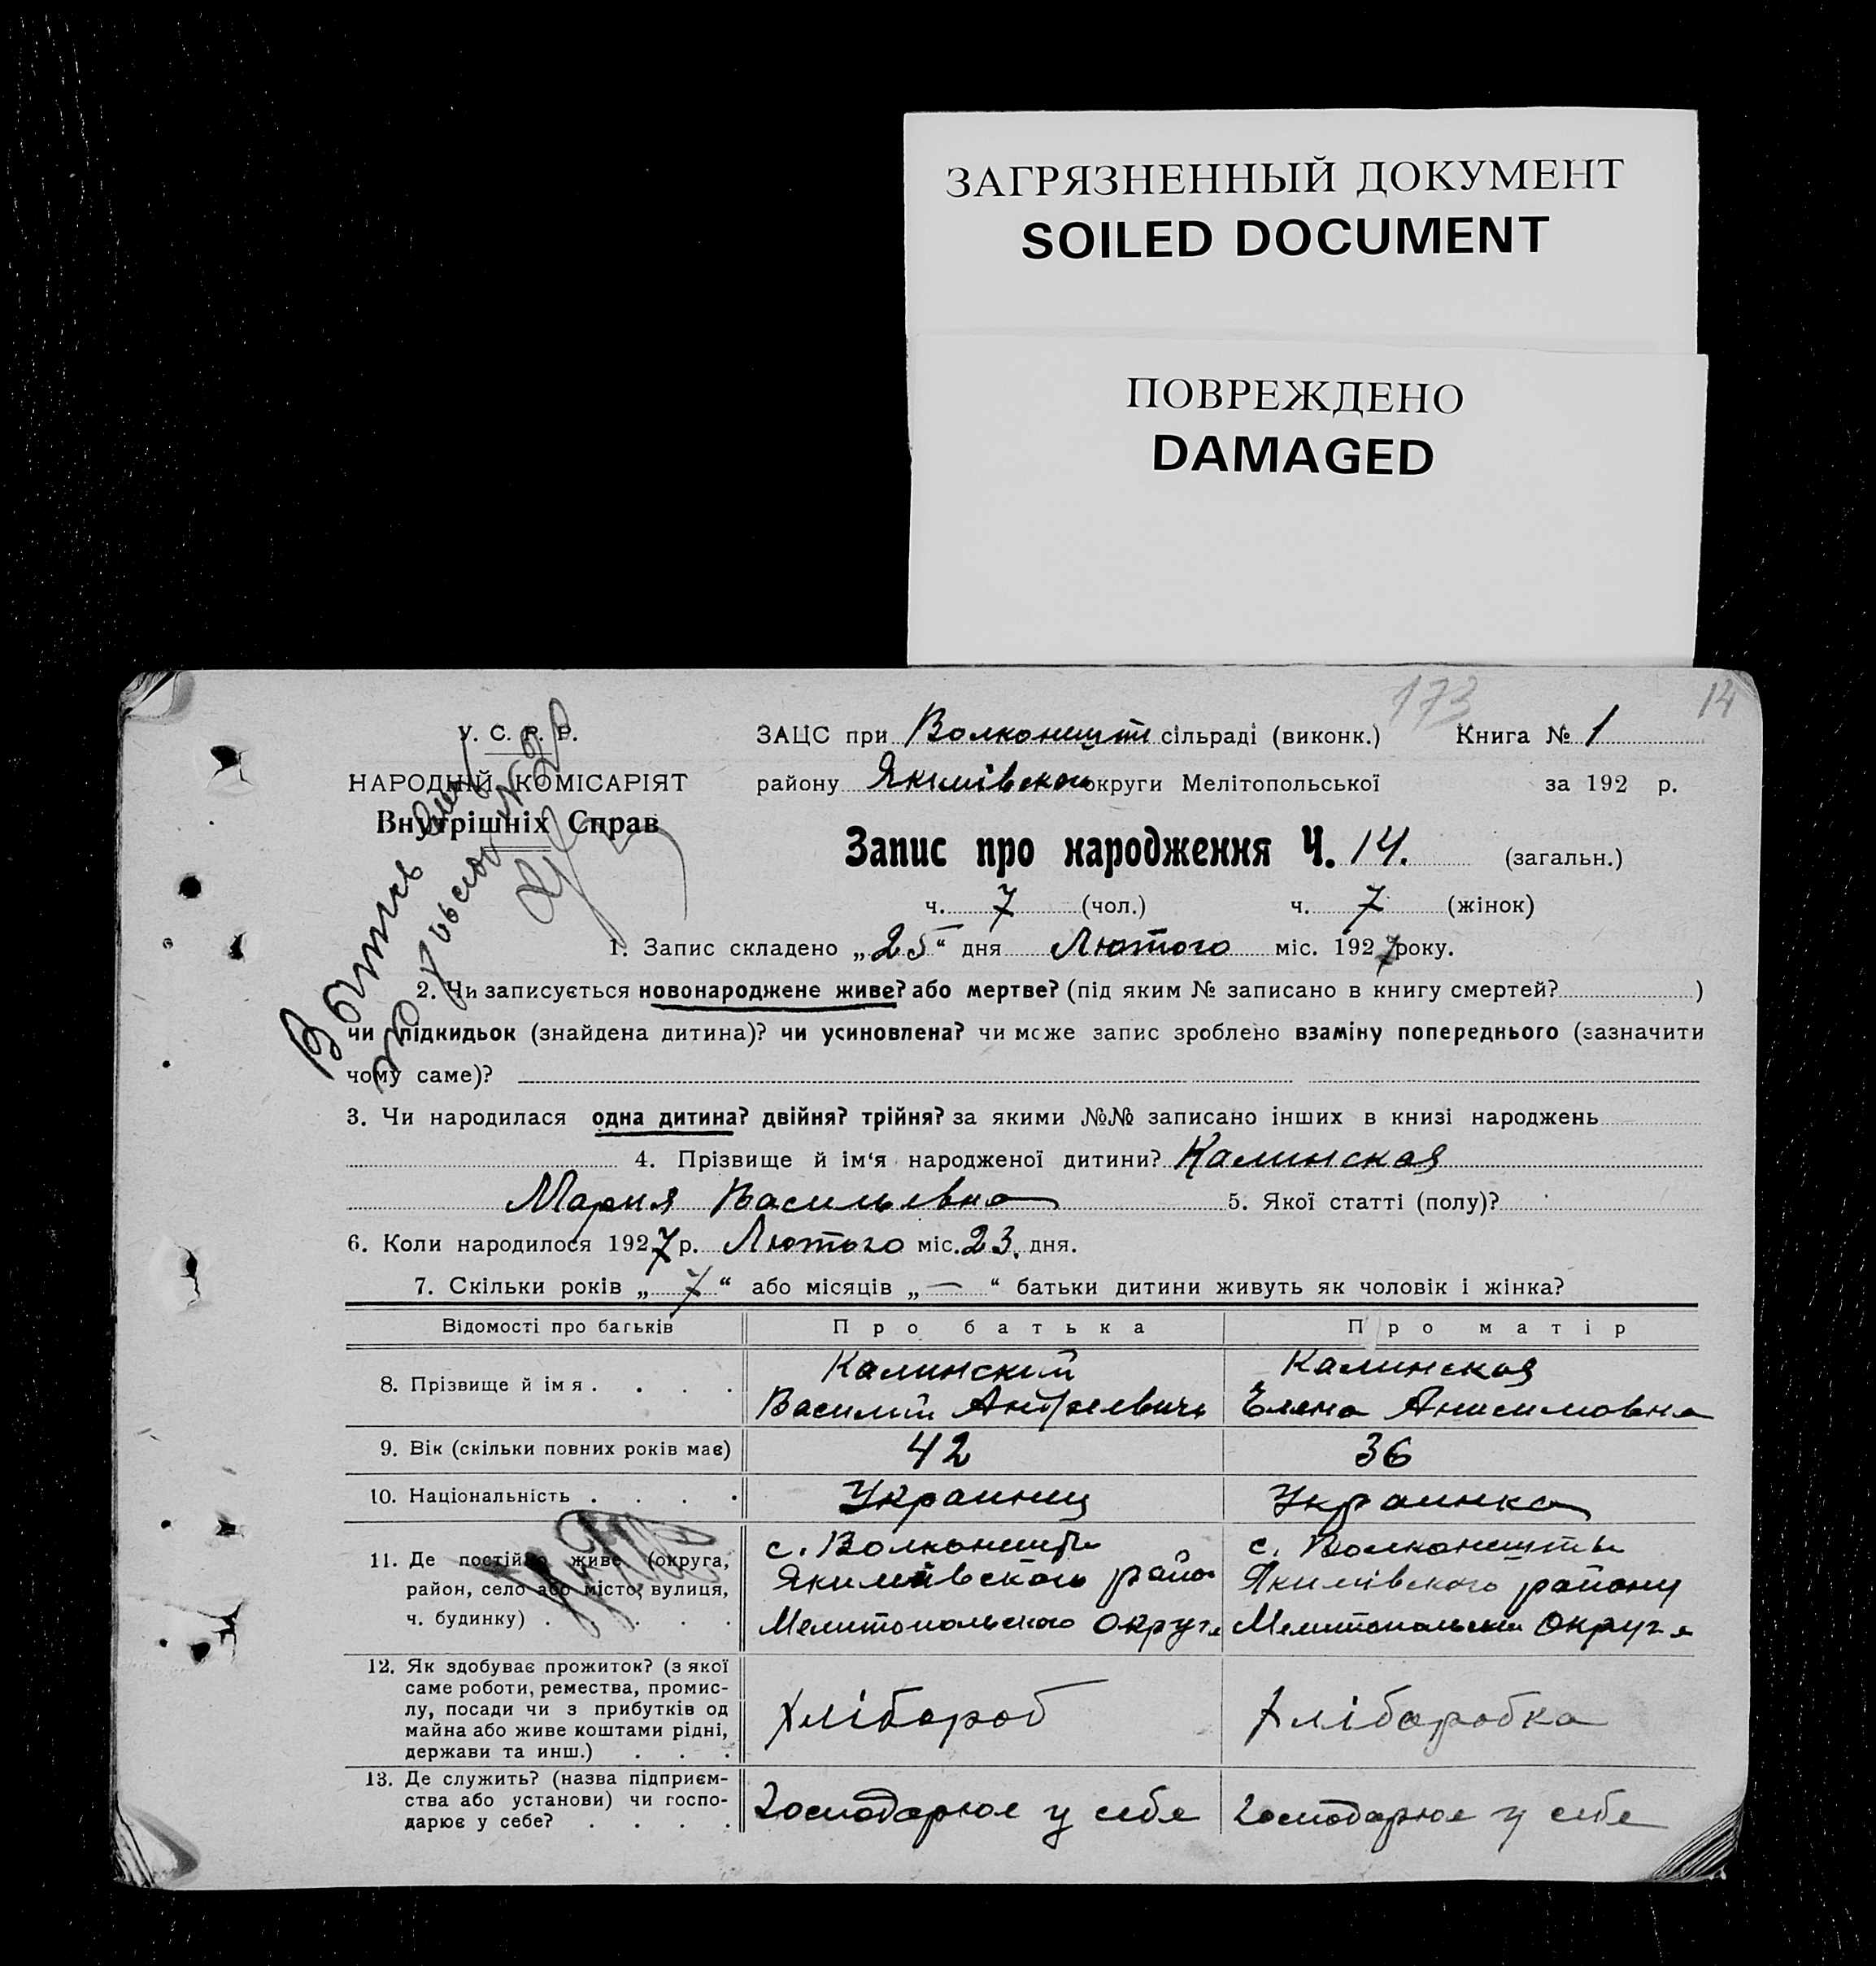 ЗАГРЯЗНЕННЫЙ ДОКУМЕНТ
SOILED DOCUMENT
ПОВРЕЖДЕНО
DAMAGED
173
14
У. С. Р. Р.
НАРОДНІЙ КОМІСАРІЯТ
Внутрішніх Справ
ЗАЦС при Волконешти сільраді (виконк.) Книга № 1
району Якимівської округи Мелітопольської за 192 р.
Запис про народження Ч. 14. (загальн.)
ч. 7 (чол.) ч. 7 (жінок)
1. Запис складено „25“ дня Лютого міс. 1927 року.
2. Чи записується новонароджене живе? або мертве? (під яким № записано в книгу смертей? )
чи підкидьок (знайдена дитина)? чи усиновлена? чи може запис зроблено взаміну попереднього (зазначити
чому саме)?
3. Чи народилася одна дитина? двійня? трійня? за якими №№ записано інших в книзі народжень
4. Прізвище й ім‘я народженої дитини? Калинская
Мария Васильевна 5. Якої статті (полу)?
6. Коли народилося 1927 р. Лютого міс. 23. дня.
7. Скільки років „7“ або місяців „—“ батьки дитини живуть як чоловік і жінка?
Відомості про батьків Про батька Про матір
8. Прізвище й імя . . . . Калинский Калинская
Василий Андреевичь Елена Анисимовна
9. Вік (скільки повних років має) 42 36
10. Національність . . . . Украинец Украинка
11. Де постійно живе (округа, с. Волконешти с. Волконешты
район, село або місто, вулиця, Якимівского район Якимівского району
ч. будинку) . . . . Мелитопольского Округа Мелитопольски Округа
12. Як здобуває прожиток? (з якої
саме роботи, ремества, промис-
лу, посади чи з прибутків од Хлібороб Хліборобка
майна або живе коштами рідні,
держави та инш.) . . .
13. Де служить? (назва підприєм-
ства або установи) чи госпо- Господарює у себе Господарює у себе
дарює у себе? . . . .